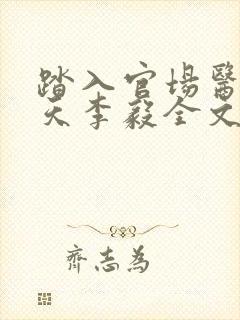 踏入官場醫
天李毅全文
齊志為